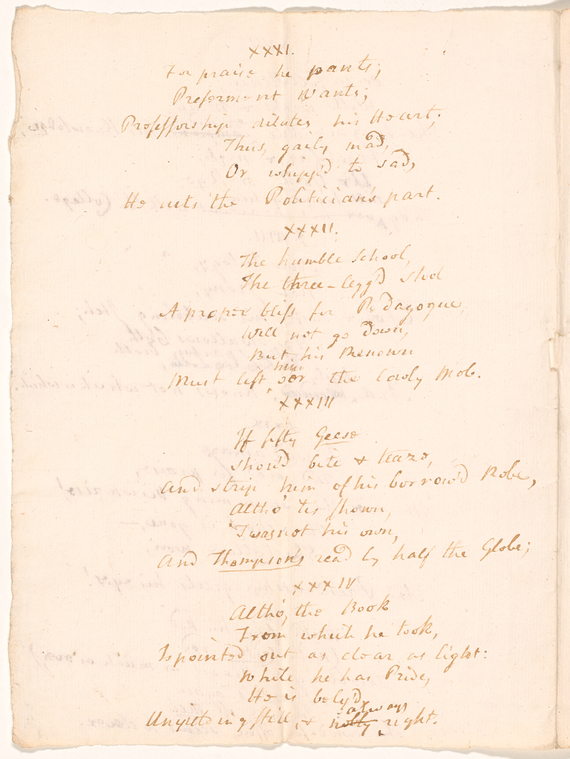 XXXI.
For praise he pants;
Preferment wants;
Professorship dilates his Heart;
Thus, gaily mad,
Or whipp'd to sad,
He acts the Politician's part.
XXXII.
The humble School,
The three-legg'd Stool
A proper bliss for Pedagogue,
Will not go down,
But his Renown
him
Must lift o'er the lowly Mob.
XXXIII
If fifty Geese
should bite &
And strip him of his borrow'd Robe,
Altho' 'tis shown,
'Twas not his own,
And Thompson's read by half the Globe;
XXXIV
Altho', the Book
From which he took,
Is pointed out as clear as light:
While he has Pride,
He is bely'd
always
Unyielding still, & right.